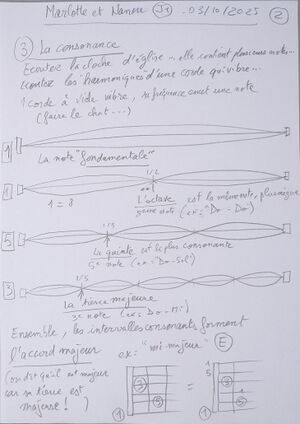 Marlotte et Nanou J1 - 03/10/2025 2
3 La consonance
Ecoutez la cloche d'église... elle contient plusieurs notes...
Ecoutez les harmoniques d'une corde qui vibre...
1 corde à vide vibre, sa fréquence émet une note
(faire le chat...)
1
La note "fondamentale"
1/2
8
1 = 8
L'octave est la même note, plus aiguë
8ème note (ex: "Do - Do")
1/3
5
La quinte est la plus consonante
5e note (ex: "Do - Sol")
1/5
3
La tierce majeure
3e note (ex: Do - Mi)
Ensemble, les intervalles consonants forment
l'accord majeur ex: "mi majeur" E
(on dit qu'il est majeur
car sa tierce est
majeure!)
3 5 1
=
1 5 3 5 1